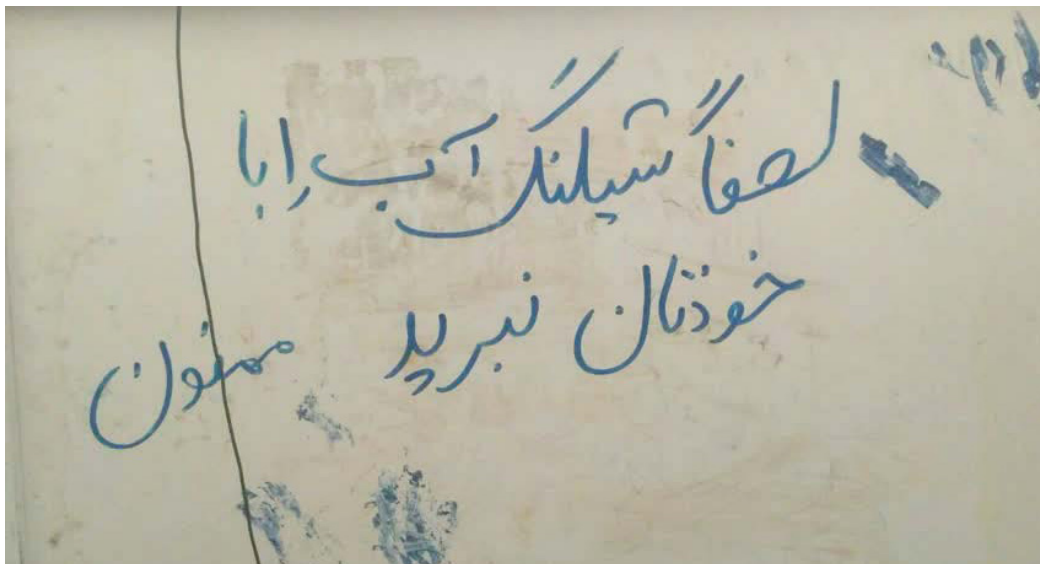 لطفاً شیلنگ آب را با
خودتان نبرید ممنون